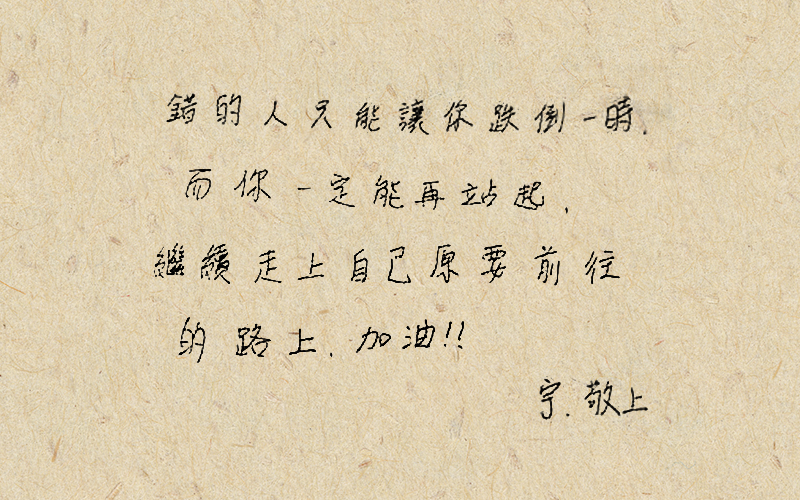 錯的人只能讓你跌倒一時.
而你一定能再站起.
繼續走上自己原要前往
的路上.加油!!
宇.敬上